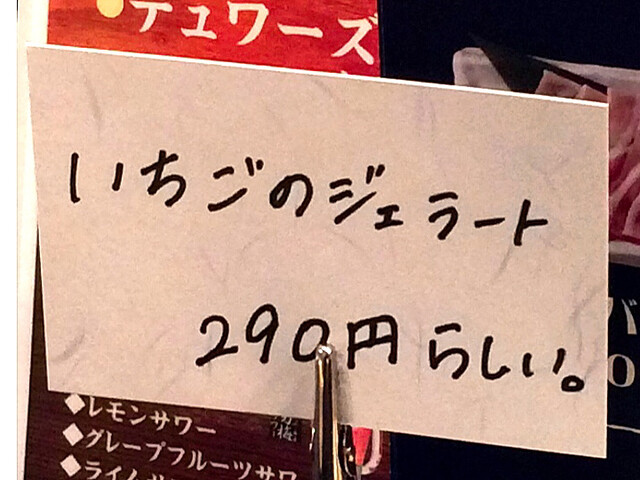 デュワーズ
いちごのジェラート
290円らしい。
◆レモンサワー
◆グレープフルーツサワ